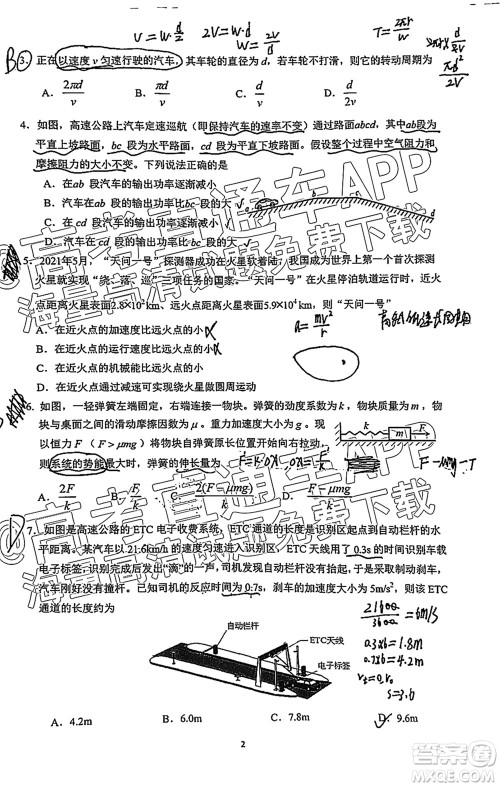 v = w·d/2   2V = w·d   T = 2πr/w
B 3. 正在以速度 v 匀速行驶的汽车，其车轮的直径为 d，若车轮不打滑，则它的转动周期为 πd/2V
A. 2πd/v   B. πd/v   C. d/v   D. d/2v
4. 如图，高速公路上汽车定速巡航（即保持汽车的速率不变）通过路面abcd，其中ab段为
平直上坡路面，bc 段为水平路面，cd 段为平直下坡路面。假设整个过程中空气阻力和
摩擦阻力的大小不变。下列说法正确的是
A. 在ab 段汽车的输出功率逐渐减小
B. 汽车在ab段的输出功率比bc 段的大
C. 在 cd 段汽车的输出功率逐渐减小
D. 汽车在cd段的输出功率比bc 段的大
5. 2021年5月，“天问一号”探测器成功在火星软着陆，我国成为世界上第一个首次探测
火星就实现“绕、落、巡”三项任务的国家。“天问一号”在火星停泊轨道运行时，近火
点距离火星表面2.8×10² km、远火点距离火星表面5.9×10⁴ km，则“天问一号”
A. 在近火点的加速度比远火点的小
B. 在近火点的运行速度比远火点的小
C. 在近火点的机械能比远火点的小
D. 在近火点通过减速可实现绕火星做圆周运动
a = mv²/r
6. 如图，一轻弹簧左端固定，右端连接一物块。弹簧的劲度系数为 k，物块质量为 m，物
块与桌面之间的滑动摩擦因数为 μ。重力加速度为 g。现以恒力 F（F > μmg）将物块自弹簧原长位置开始向右拉动，
则系统的势能最大时，弹簧的伸长量为
A. 2F/k   B. F/k   C. 2(F − μmg)/k   D. (F − μmg)/k
7. 如图是高速公路的 ETC 电子收费系统，ETC 通道的长度是识别区起点到自动栏杆的水
平距离。某汽车以 21.6km/h 的速度匀速进入识别区，ETC 天线用了 0.3s 的时间识别车载
电子标签，识别完成后发出“滴”的一声，司机发现自动栏杆没有抬起，于是采取制动刹车，
汽车刚好没有撞杆。已知司机的反应时间为 0.7s，刹车的加速度大小为 5m/s²，则该 ETC
通道的长度约为
21600/3600 = 6m/s
0.3×6 = 1.8m
0.7×6 = 4.2m
s = 3.6
自动栏杆
ETC天线
电子标签
A. 4.2m   B. 6.0m   C. 7.8m   D. 9.6m
2
高考直通车APP
海量高清试题免费下载
高考直通车APP
海量高清试题免费下载
答案圈
MXQE.COM